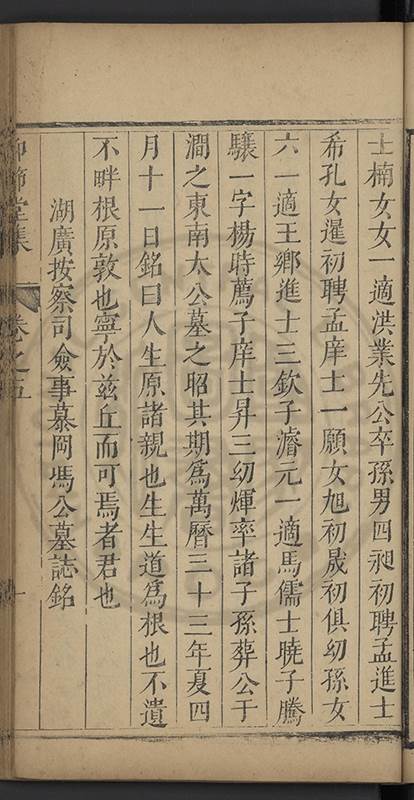 士楠女女一適洪業先公卒孫男四昶初聘孟進士
希孔女暹初聘孟庠士一願女旭初晟初俱幼孫女
六一適王鄉進士三欽子濬元一適馬儒士曉子騰
驤一字楊時薦子庠士昇三幼煇率諸子孫葬公于
澗之東南太公墓之昭其期爲萬曆三十三年夏四
月十一日銘曰人生原諸親也生生道爲根也不遺
不畔根原敦也寧於兹丘而可焉者君也
湖廣按察司僉事慕岡馮公墓誌銘
節堂集
卷之五